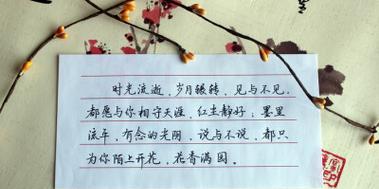 时光流逝，岁月辗转，见与不见，
都愿与你相守天涯，红尘静好；墨里
流年，有念的光阴，说与不说，都只
为你陌上开花，花香满园。